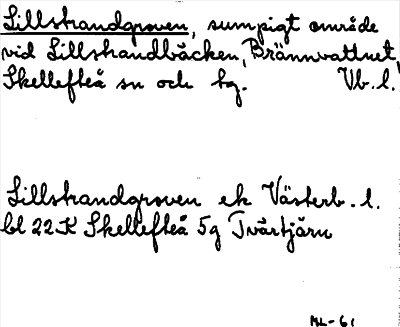 Lillstrandgroven, sumpigt område
vid Lillstrandbäcken, Brännvattnet,
Skellefteå sn och hg. Vb. l.
Lillstrandgroven ek Västerb. l.
bl 22K Skellefteå 5g Tvärtjärn
ML-61